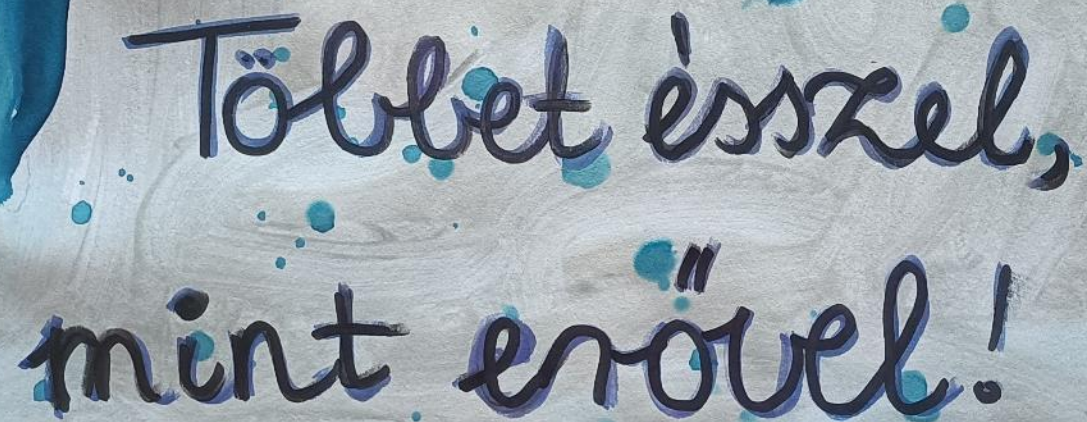 Többet ésszel,
mint erővel!